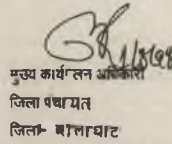 मुख्य कार्यपालन अधिकारी
जिला पंचायत
जिला- बालाघाट